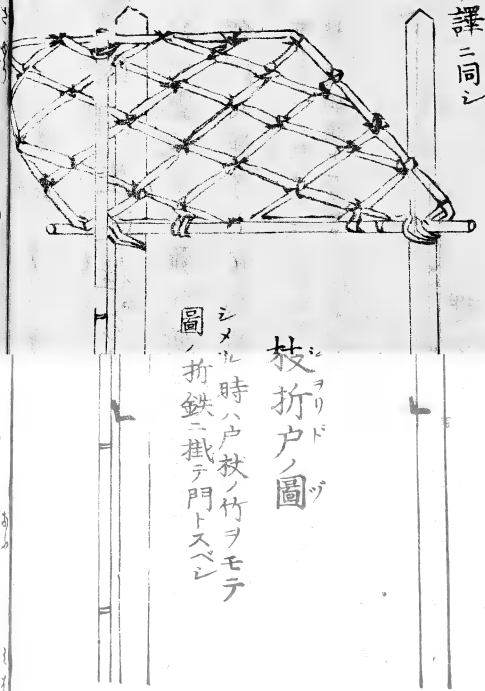 譯ニ同シ
枝折戸ノ圖
シメル時ハ戸杖ノ竹ヲモテ
圖ノ折鉄ニ掛テ門トスベシ